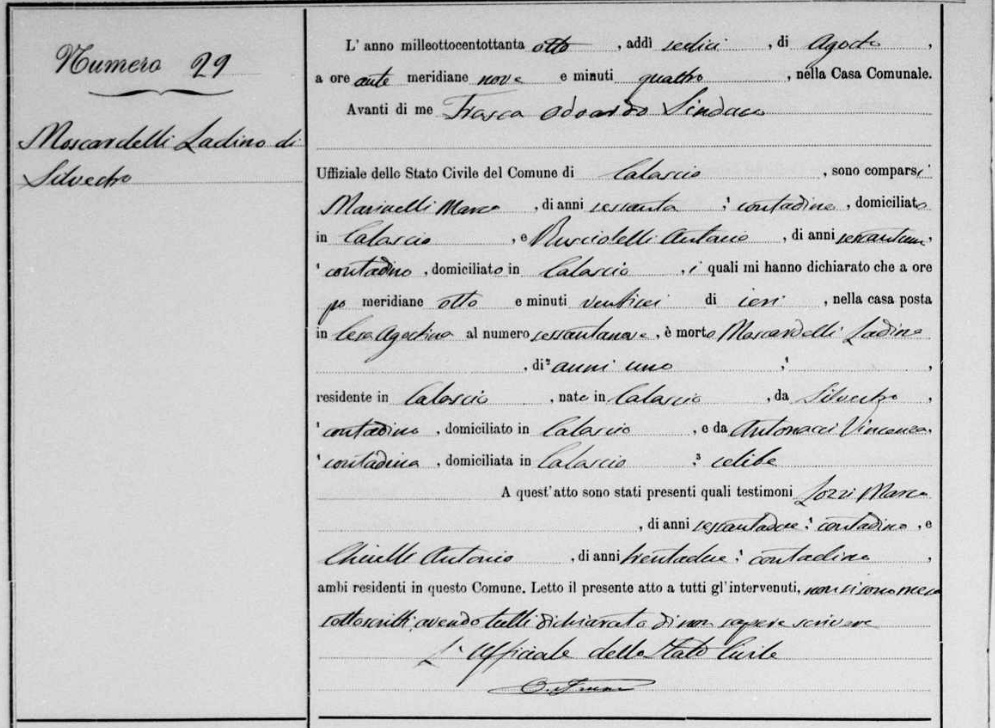 Numero 29
Moscardelli Ladino di
Silvestro
L' anno milleottocentottanta otto, addì sedici, di Agosto,
a ore ante meridiane nove e minuti quattro, nella Casa Comunale.
Avanti di me Frasca Odoardo Sindaco
Uffiziale dello Stato Civile del Comune di Calascio, sono comparsi
Marinelli Marco, di anni sessanta, contadino, domiciliato
in Calascio, e Antonio, di anni sessantuno,
contadino, domiciliato in Calascio, i quali mi hanno dichiarato che a ore
po meridiane otto e minuti venticinque di ieri, nella casa posta
in al numero sessantanove, è morto Moscardelli Ladino
, di anni uno,
residente in Calascio, nato in Calascio, da Silvestro,
contadino, domiciliato in Calascio, e da Antonacci Vincenza,
contadina, domiciliata in Calascio celibe
A quest'atto sono stati presenti quali testimoni Marco
, di anni sessantadue, contadino, e
Antonio, di anni trentadue, contadino,
ambi residenti in questo Comune. Letto il presente atto a tutti gl'intervenuti, non si sono meco
sottoscritti avendo tutti dichiarato di non sapere scrivere
L'Ufficiale dello Stato Civile